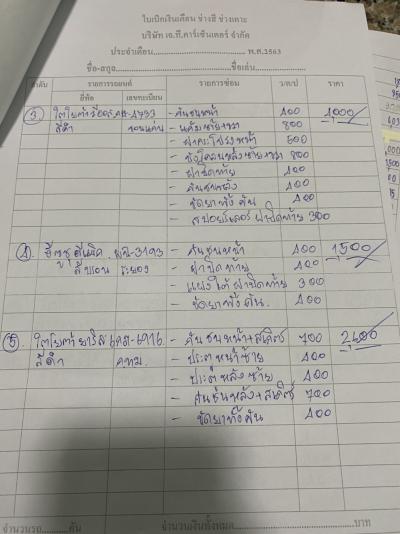 ใบเบิกเงินเดือน ช่างสี ช่างเคาะ
บริษัท เอ.ที.คาร์เซ็นเตอร์ จำกัด
ประจำเดือน พ.ศ.2563
ชื่อ-สกุล ชื่อเล่น
ลำดับ รายการรถยนต์ รายการซ่อม ว/ด/ป ราคา
ยี่ห้อ เลขทะเบียน
3. โตโยต้า -4793 - กันชนหน้า 400
สีดำ ขอนแก่น 800
- ฝากระโปรงหน้า 500
800
- ฝาปิดท้าย 400
- กันชนหลัง 400
- ขัดยาทั้งคัน 400
- สปอยเลอร์ ฝาปิดท้าย 300
4. อีซูซุ -3193 - กันชนหน้า 400 1500
ระยอง - ฝาปิดท้าย 400
- แผงใต้ฝาปิดท้าย 300
- ขัดยาทั้งคัน. 400
5. โตโยต้า ยาริส -6916 - กันชนหน้า+สเกิร์ต 700 2600
สีดำ กทม. - ประตูหน้าซ้าย 400
- ประตูหลังซ้าย 400
- กันชนหลัง+สเกิร์ต 700
- ขัดยาทั้งคัน 400
จำนวนรถ คัน จำนวนเงินทั้งหมด บาท